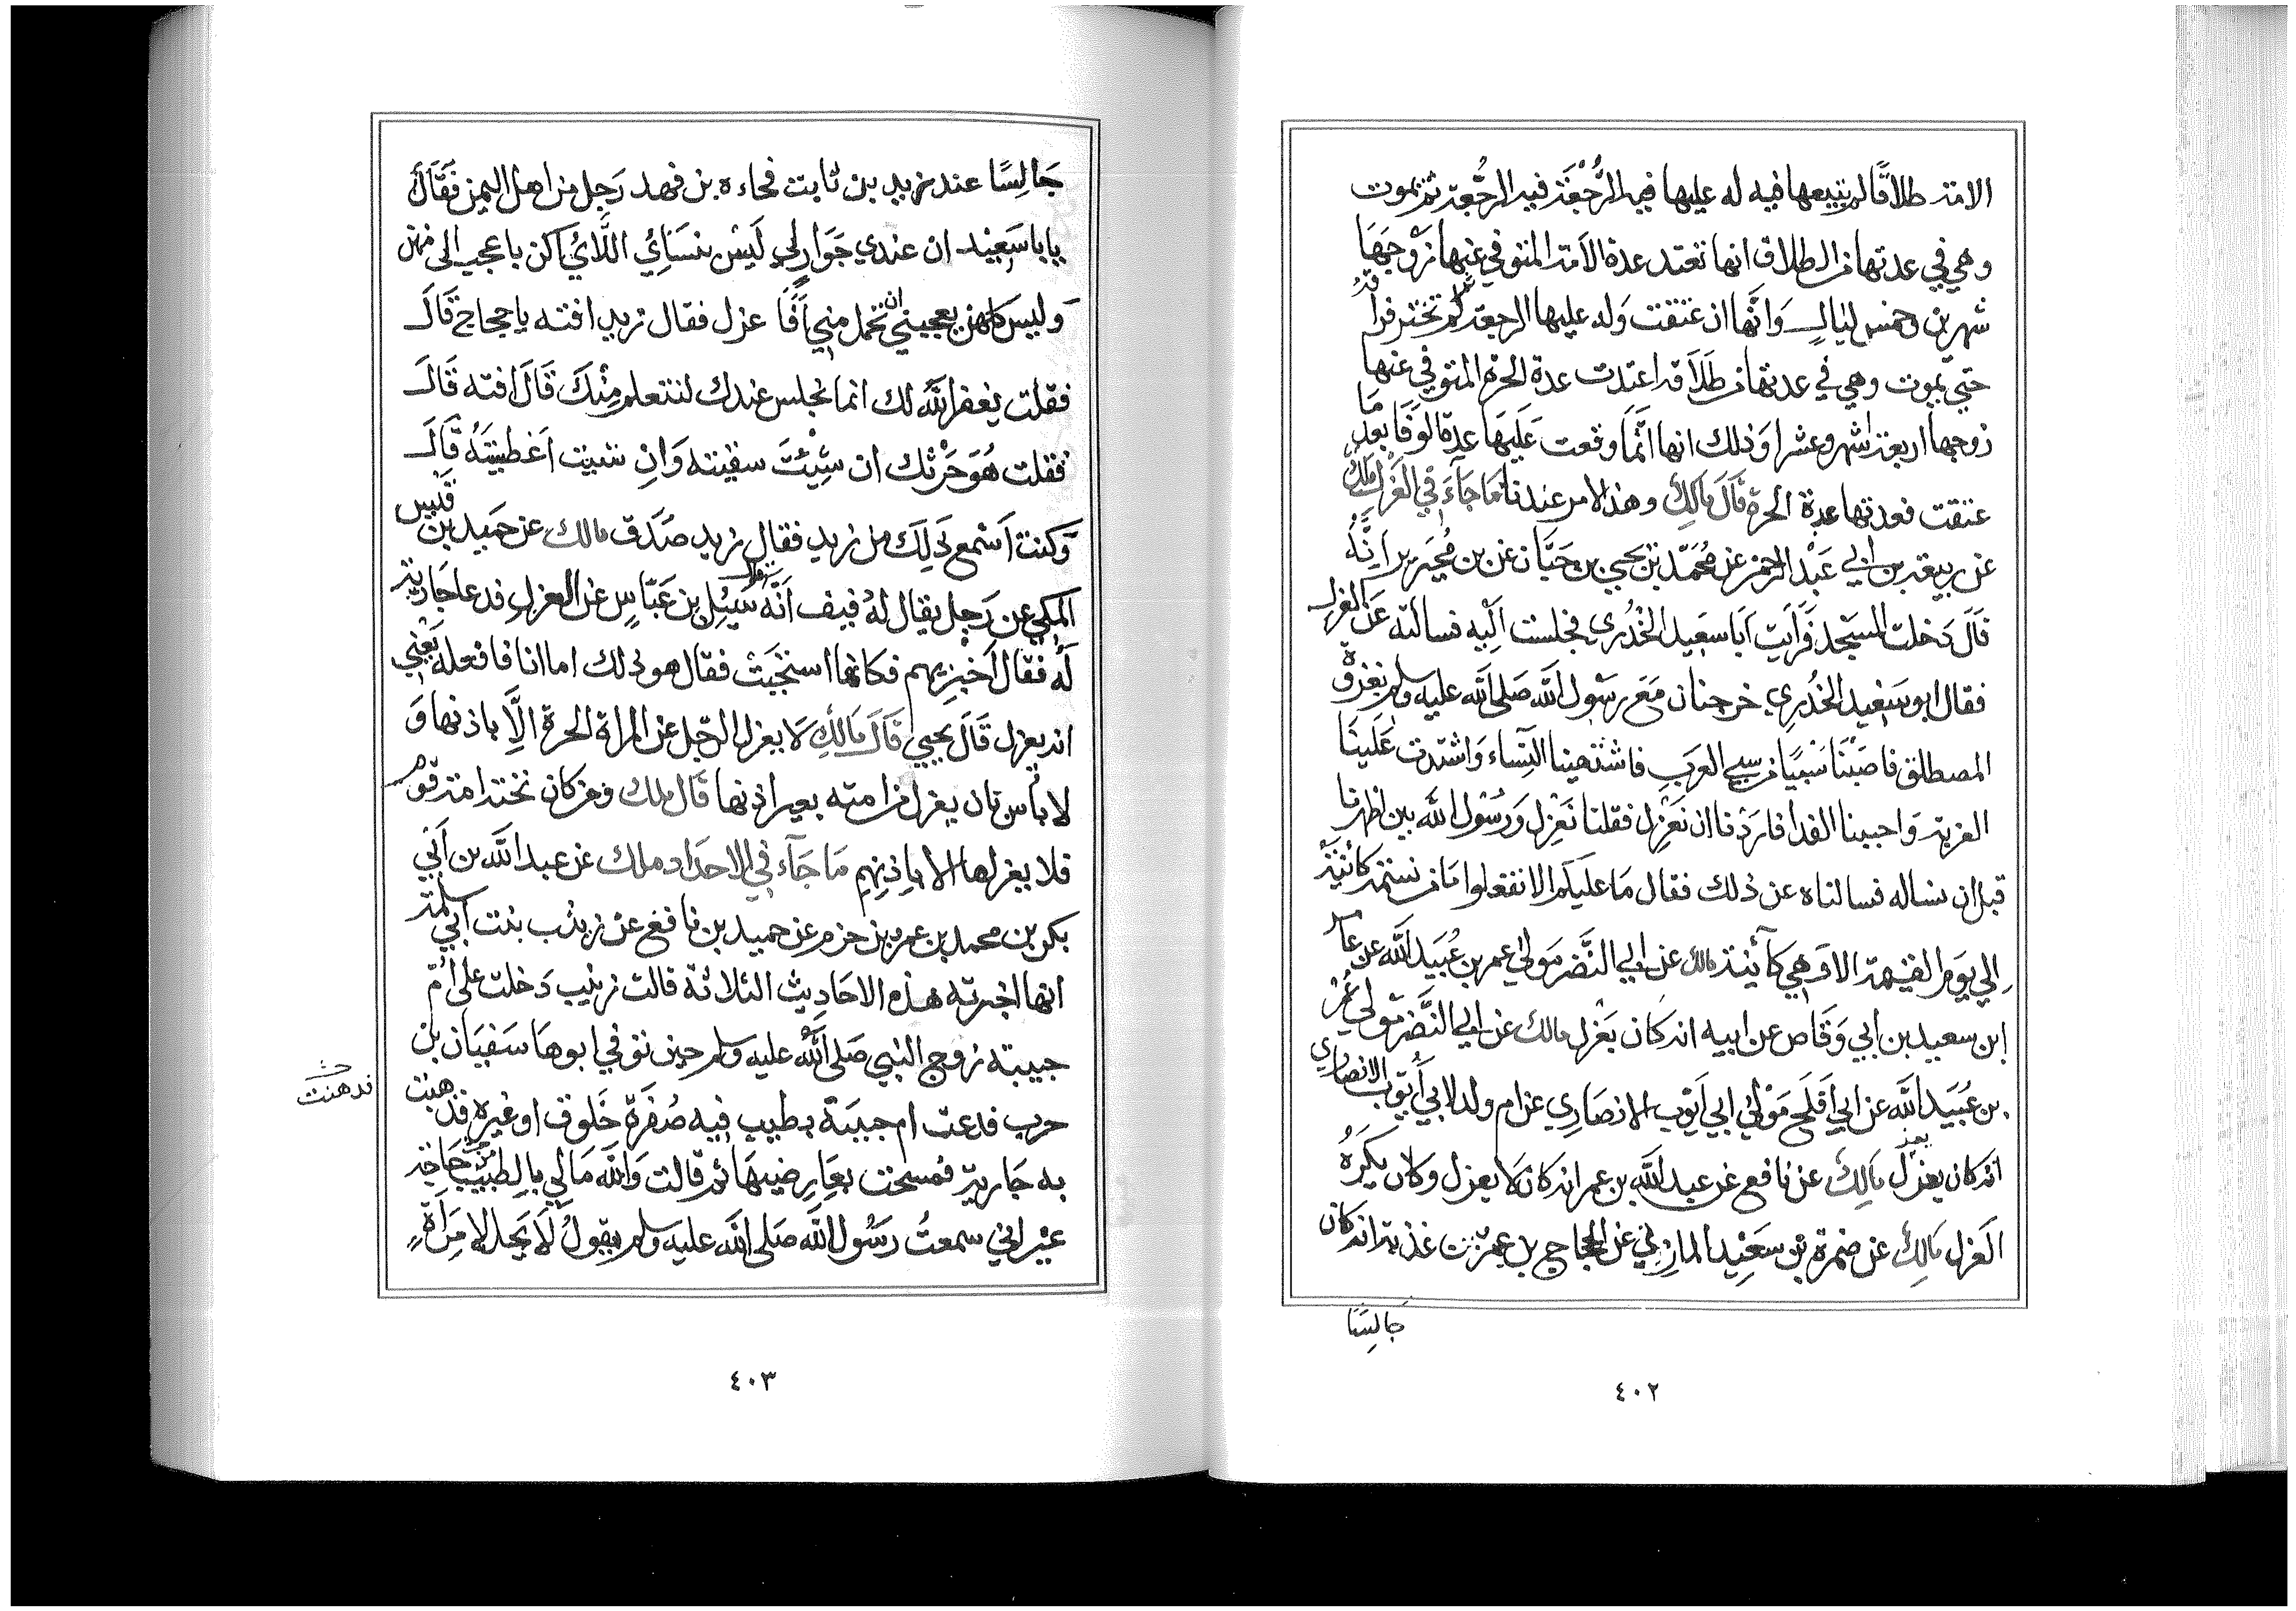 الامة طلاقا لم يبتعها فيه له عليها فيه الرجعة فيه الرجعة ثم يموت
وهي في عدتها من الطلاق انها تعتد عدة الامة المتوفي عنها زوجها
شهرين وخمس ليال وانها ان عتقت وله عليها الرجعة ثم لم تختر فراقه
حتي يموت وهي في عدتها من طلاقه اعتدت عدة الحرة المتوفي عنها
زوجها اربعة اشهر وعشرا وذلك انها انما وقعت عليها عدة الوفا بعد ما
عتقت فعدتها عدة الحرة قال مالك وهذا الامر عندنا ما جاء في العزل ملك
عن ربيعة بن ابي عبد الرحمن عن محمد بن يحيي بن حيان عن بن محيريز انه
قال دخلت المسجد فرايت ابا سعيد الخدري فجلست اليه فسالته عن العزل
فقال ابو سعيد الخدري خرجنا مع رسول الله صلى الله عليه وسلم في غزوة
المصطلق فاصبنا سبيا من سبي العرب فاشتهينا النساء واشتدت علينا
العزبة واحببنا الفدا فاردنا ان نعزل فقلنا نعزل ورسول الله بين اظهرنا
قبل ان نساله فسالناه عن ذلك فقال ما عليكم الا تفعلوا ما من نسمة كائنة
الي يوم القيمة الا وهي كائنة مالك عن ابي النضر مولي عمر بن عبيد الله عن عامر
ابن سعيد بن ابي وقاص عن ابيه انه كان يعزل مالك عن ابي النضر مولي عمر
بن عبيد الله عن ابي افلح مولي ابي ايوب الانصاري عن ام ولد لابي ايوب الانصاري
انه كان يعزل مالك عن نافع عن عبد الله بن عمر انه كان لا يعزل وكان يكره
العزل مالك عن ضمرة بن سعيد المازني عن الحجاج بن عمرو بن غزية انه كان
جالسا
٤٠٢
جالسا عند زيد بن ثابت فجاءه بن فهد رجل من اهل اليمن فقال
يابا سعيد ان عندي جوار لي ليس نسائي اللائي اكن باعجب الى منهن
وليس كلهن يعجبني ان تحمل مني افا عزل فقال زيد افته يا حجاج قال
فقلت يغفر الله لك انما نجلس عندك لنتعلم منك قال افته قال
فقلت هو حرثك ان شئت سقيته وان شيت اعطشته قال
وكنت اسمع ذلك من زيد فقال زيد صدق مالك عن حميد بن قيس
المكي عن رجل يقال له ذفيف انه قال سئل بن عباس عن العزل فدعا جارية
له فقال اخبريهم فكانها استحيت فقال هو ذلك اما انا فافعله يعني
انه يعزل قال يحيي قال مالك لا يعزل الرجل عن المراة الحرة الا باذنها و
لا باس بان يعزل عن امته بغير اذنها قال ملك ومن كان تحته امة قوم
فلا يعزلها الا باذنهم ما جاء في الاحداد ملك عن عبد الله بن ابي
بكر بن محمد بن عمرو بن حزم عن حميد بن نافع عن زينب بنت ابي سلمة
انها اخبرته هذه الاحاديث الثلاثة قالت زينب دخلت على ام
حبيبة زوج النبي صلى الله عليه وسلم حين توفي ابوها سفيان بن
حرب فدعت ام حبيبة بطيب فيه صفرة خلوق او غيره فدهنت
فدهنت
به جارية فمسحت بعارضيها ثم قالت والله ما لي بالطيب من حاجة
غير اني سمعت رسول الله صلى الله عليه وسلم يقول لا يحل لامراة
٤٠٣